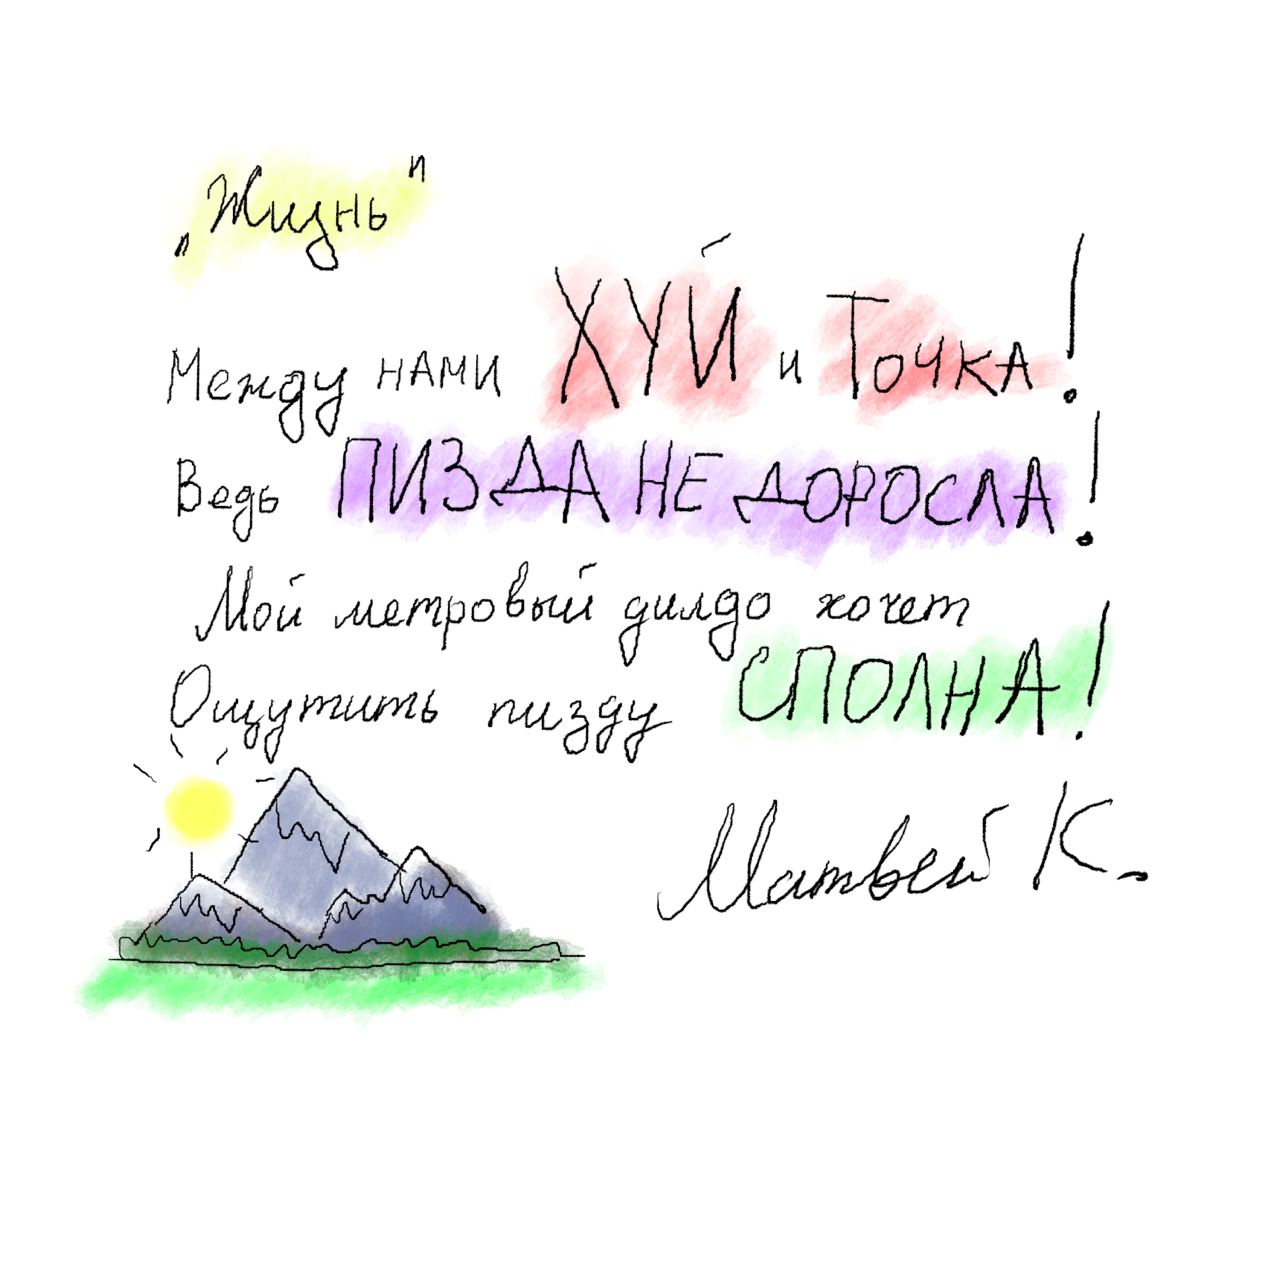 „Жизнь"
Между нами ХУЙ и Точка!
Ведь ПИЗДА НЕ ДОРОСЛА!
Мой метровый дилдо хочет
Ощутить пизду СПОЛНА!
Матвей К.